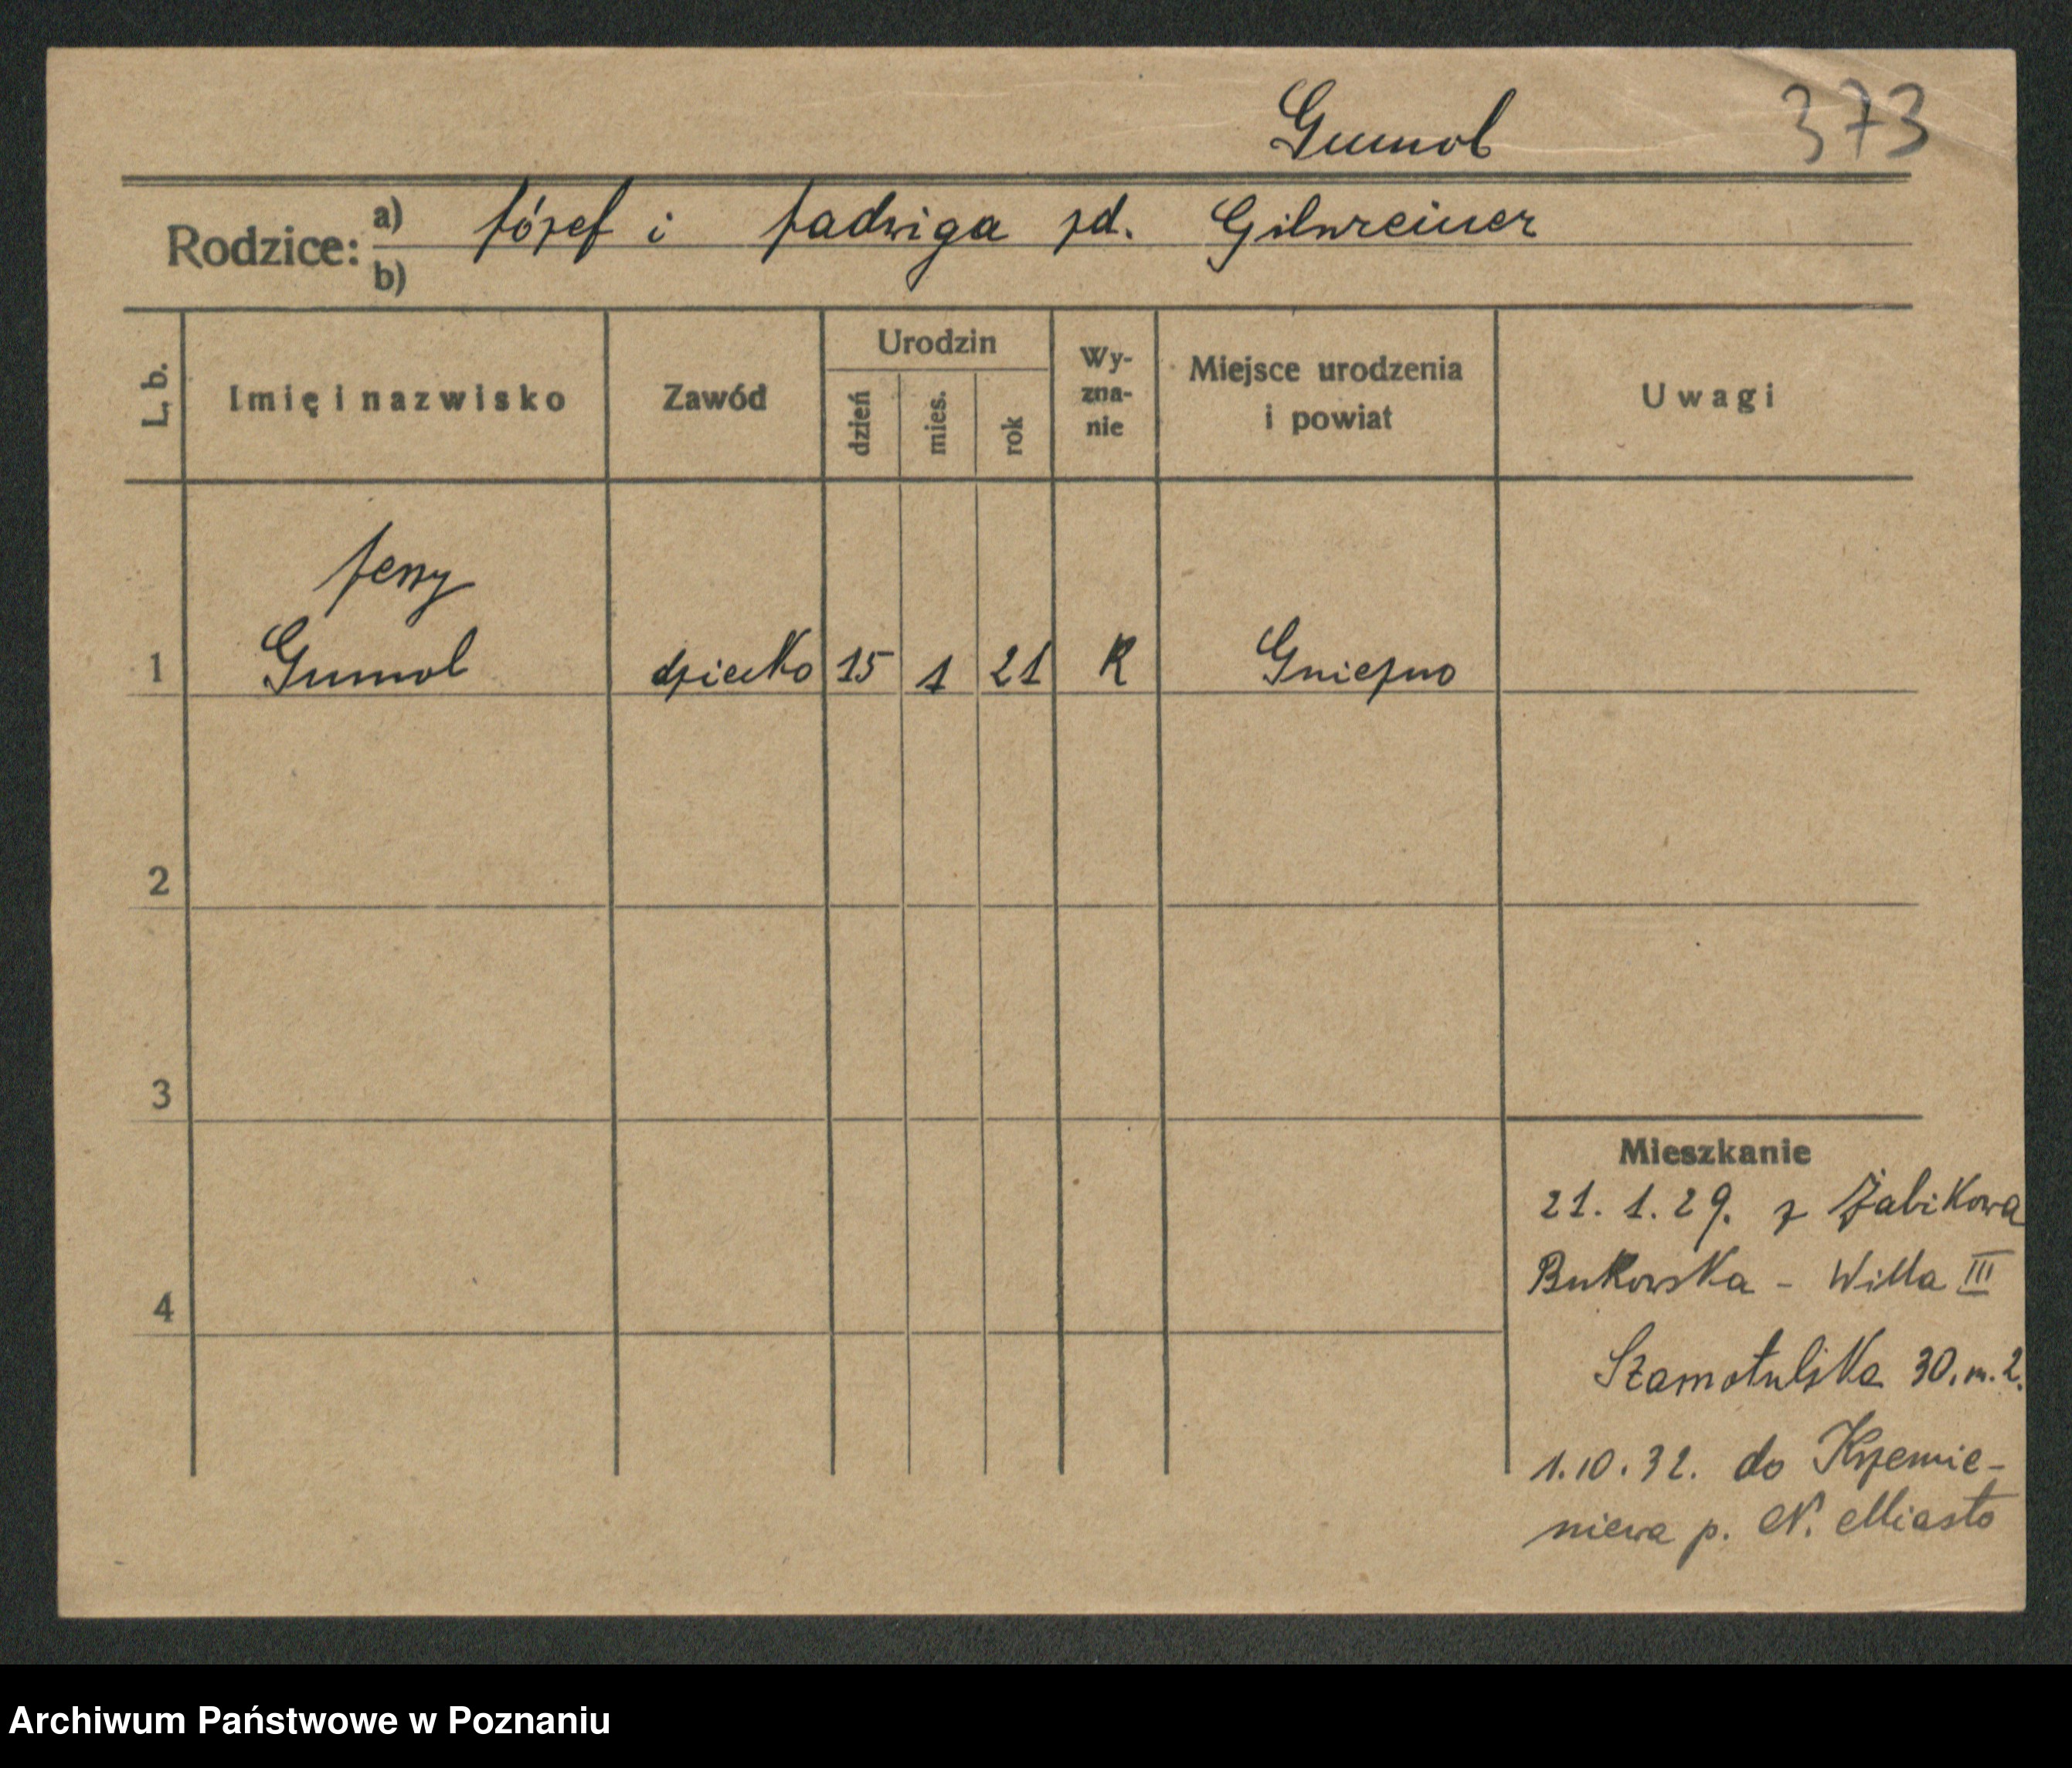 Gumol 373
Rodzice: a) Józef i Jadwiga zd.
b)
L. b. Imię i nazwisko Zawód Urodzin dzień mies. rok Wy-zna-nie Miejsce urodzenia i powiat Uwagi
Jerzy
1 Gumol dziecko 15 1 21 R Gniezno
2
3
Mieszkanie
21. 1. 29. z Żabikowa
Bukowska - Willa III
4
Szamotulska 30. m. 2.
1.10.32. do Krzemie-
niewa p. N. Miasto
Archiwum Państwowe w Poznaniu